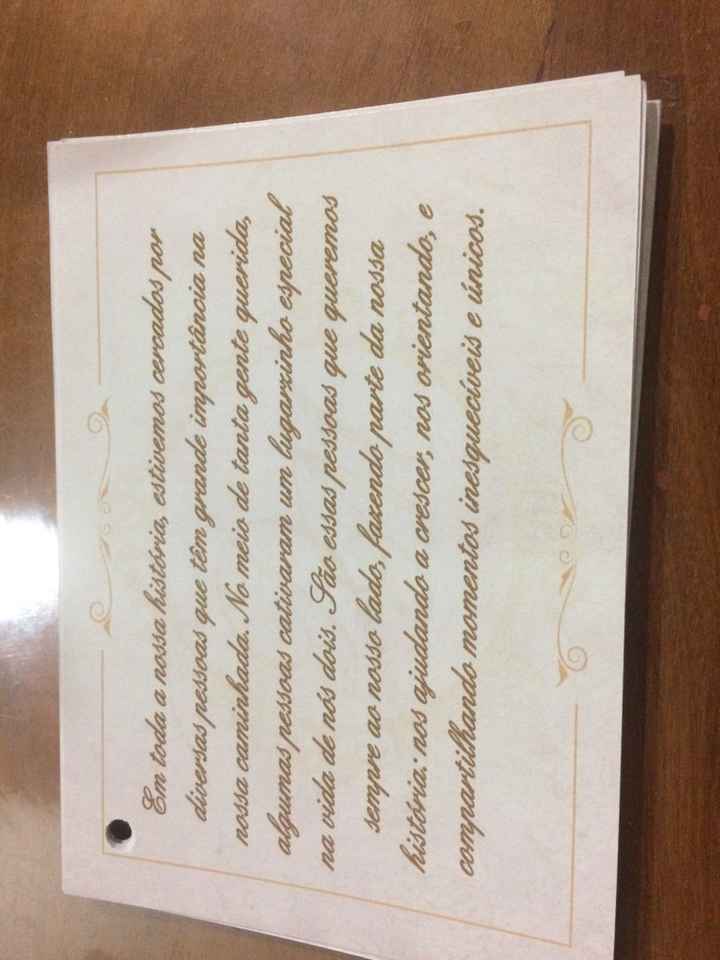 Em toda a nossa história, estivemos cercados por
diversas pessoas que têm grande importância na
nossa caminhada. No meio de tanta gente querida,
algumas pessoas cativaram um lugarzinho especial
na vida de nós dois. São essas pessoas que queremos
sempre ao nosso lado, fazendo parte da nossa
história: nos ajudando a crescer, nos orientando, e
compartilhando momentos inesquecíveis e únicos.